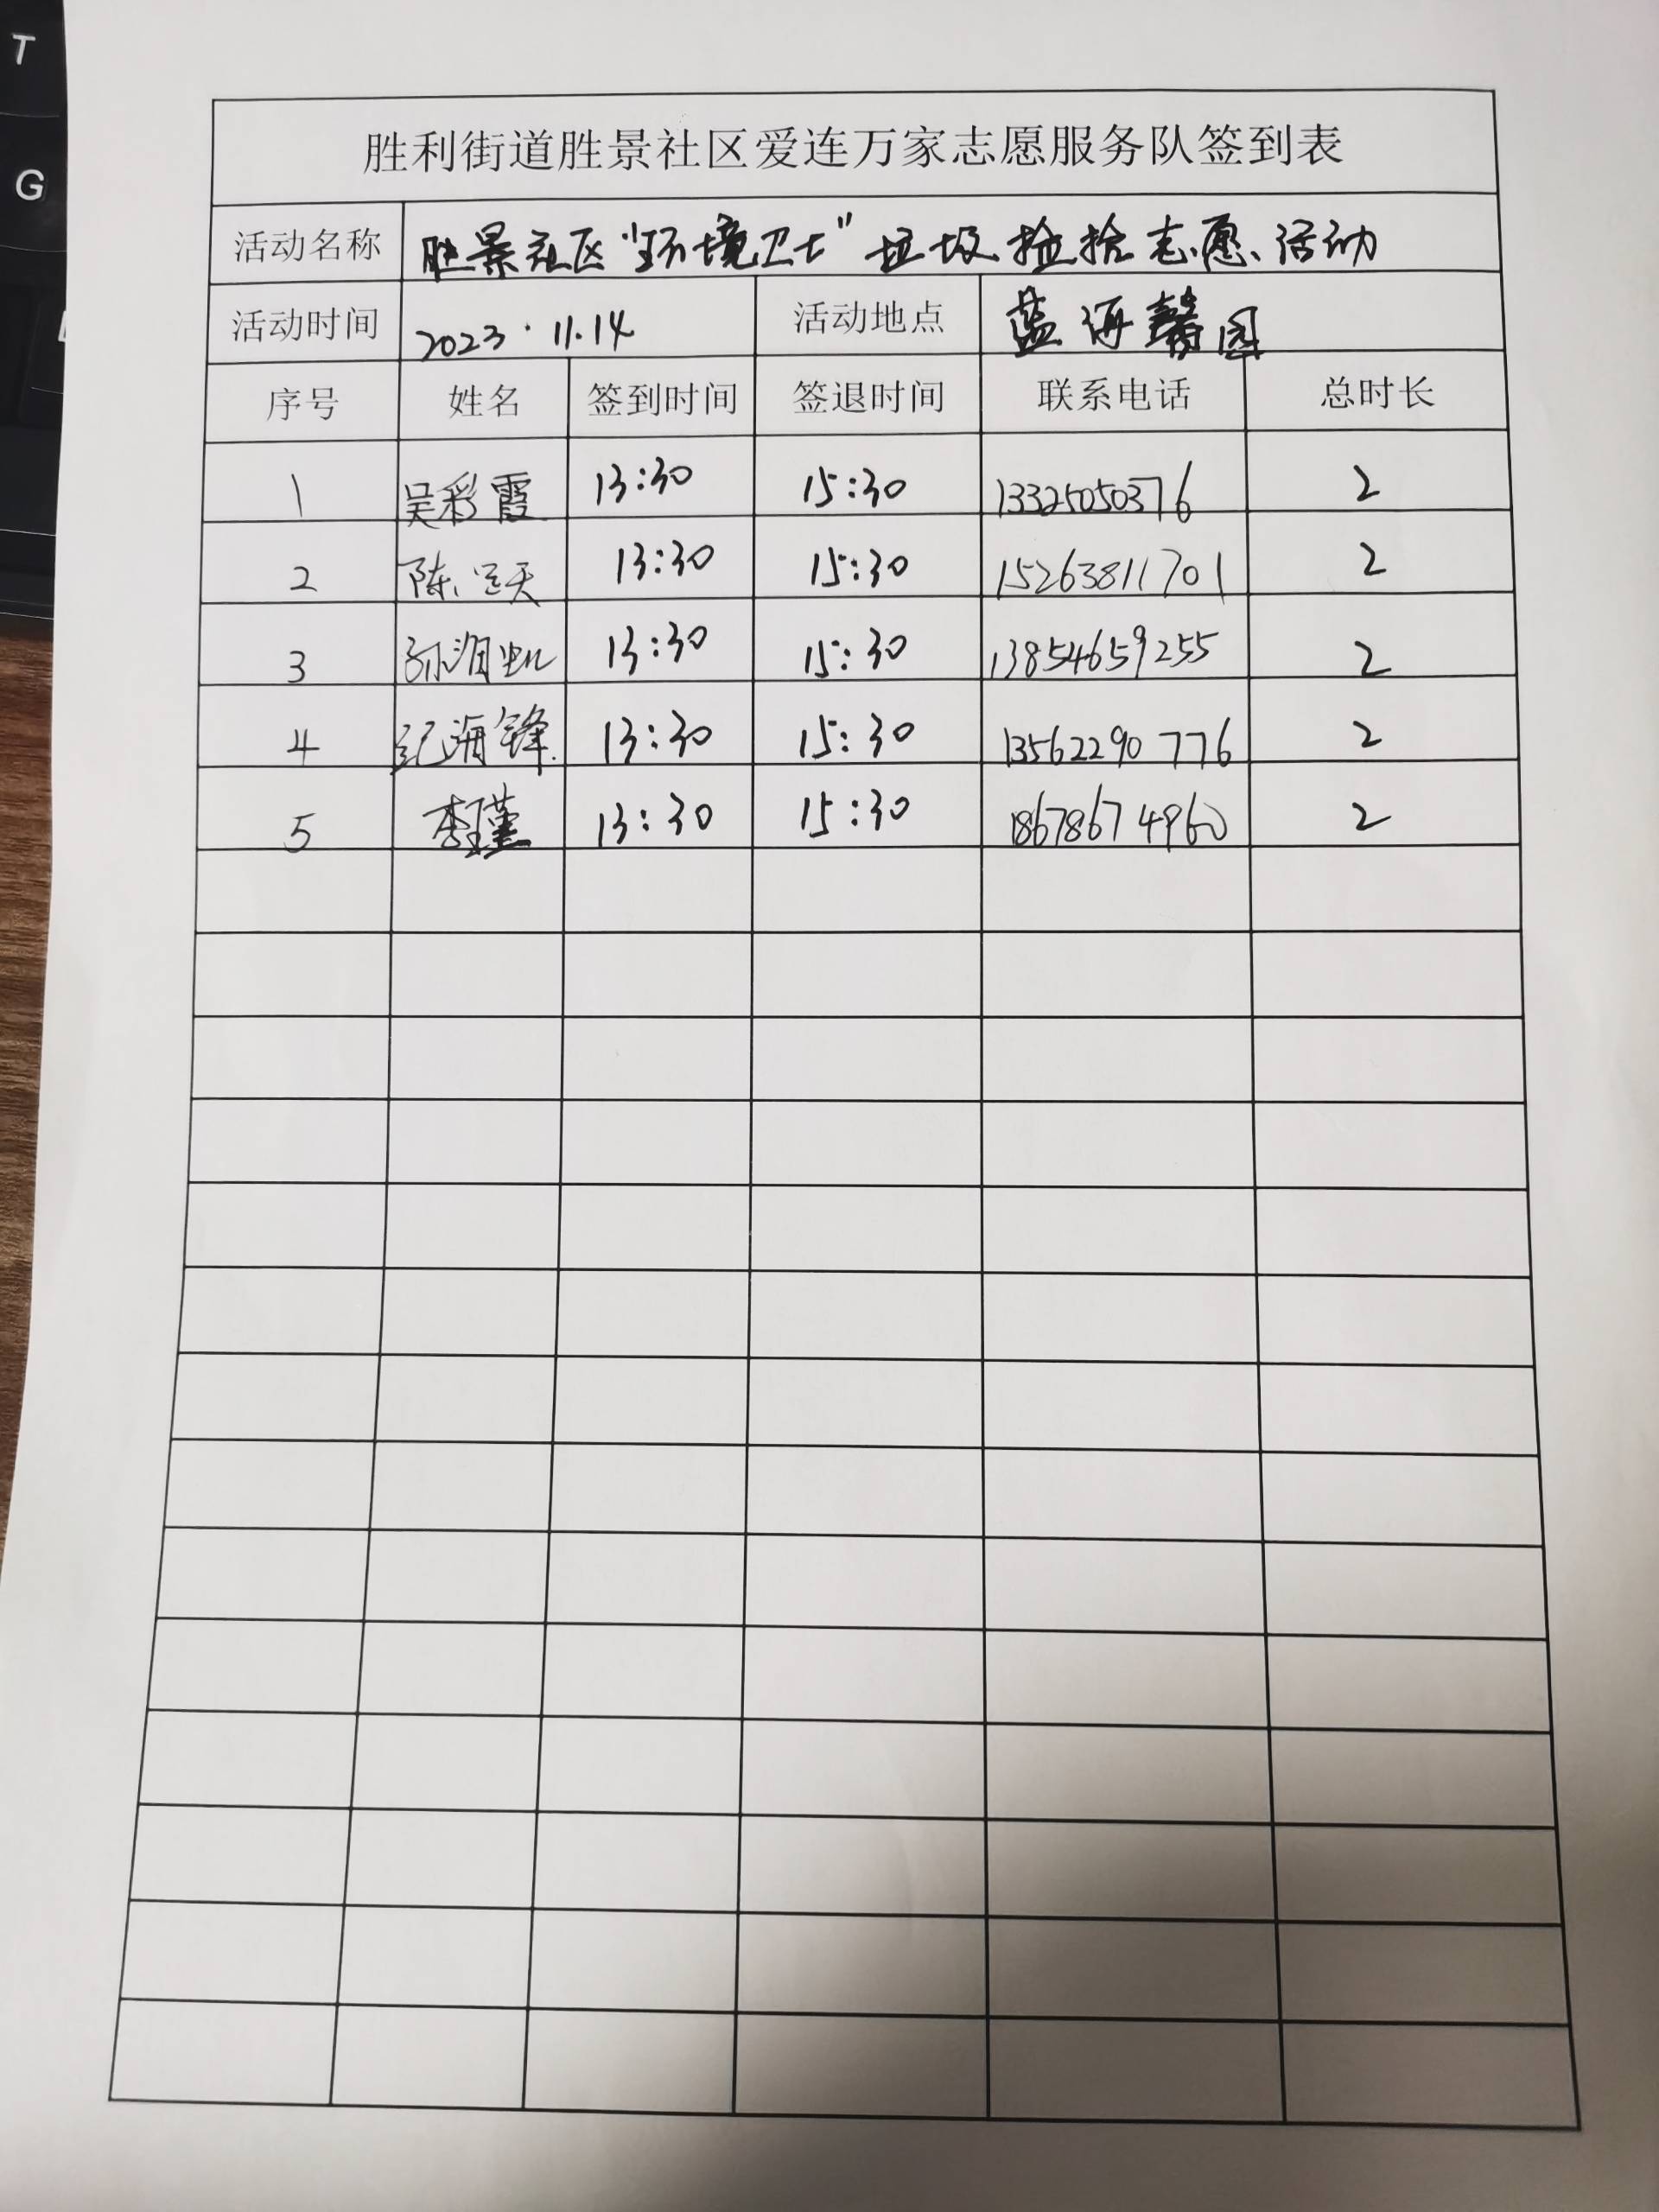 T
G
胜利街道胜景社区爱连万家志愿服务队签到表
活动名称 胜景社区“环境卫士”垃圾捡拾志愿活动
活动时间 2023.11.14 活动地点 蓝海馨园
序号 姓名 签到时间 签退时间 联系电话 总时长
1 吴彩霞 13:30 15:30 13325050376 2
2 陈 天 13:30 15:30 15263811701 2
3 孙 13:30 15:30 13854659255 2
4 纪海锋 13:30 15:30 13562290776 2
5 李瑾 13:30 15:30 18678674960 2